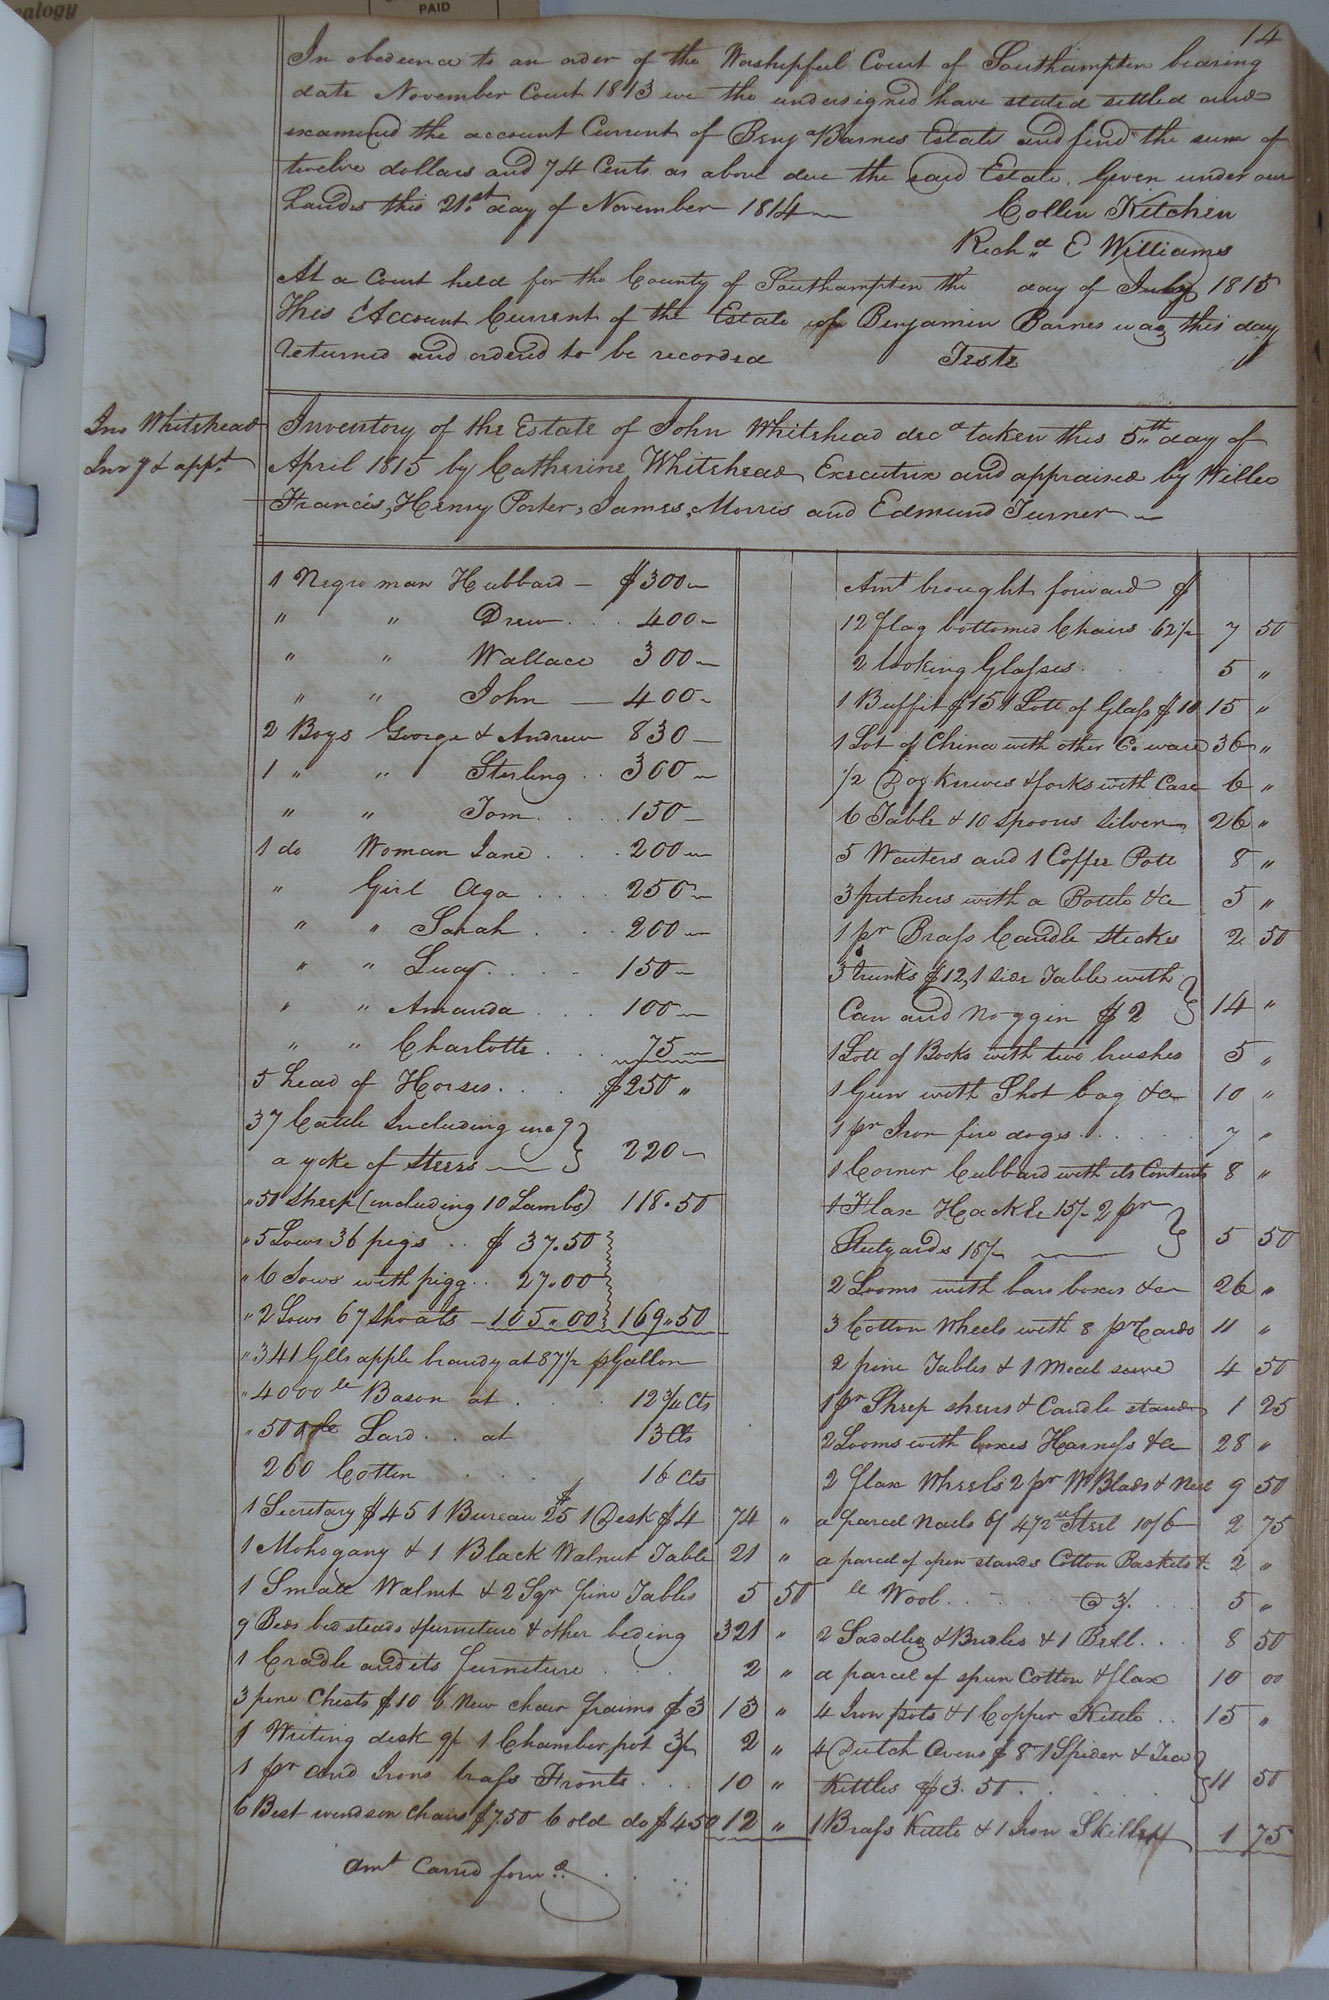 ealogy
PAID
14
In obedience to an order of the Worshipful Court of Southampton bearing
date November Court 1813 we the undersigned have stated settled and
examined the account Current of Benja Barnes Estate and find the sum of
twelve dollars and 74 Cents as above due the said Estate. Given under our
hands this 21st day of November 1814
Collin Kitchen
Richd E Williams
At a Court held for the County of Southampton the day of July 1815
This Account Current of the Estate of Benjamin Barnes was this day
returned and ordered to be recorded Teste
Jno Whitehead
Invy & appt
Inventory of the Estate of John Whitehead decd taken this 5th day of
April 1815 by Catherine Whitehead Executrix and appraised by Willie
Francis, Henry Porter, James Morris and Edmund Turner
1 Negro man Hubbard $300
" " Drew 400
" " Wallace 300
" " John 400
2 Boys George & Andrew 830
1 " " Sterling 300
" " Tom 150
1 do Woman Jane 200
" Girl Aga 250
" " Sarah 200
" " Lucy 150
" " Amanda 100
" " Charlotte 75
5 head of Horses $250 "
37 Cattle Including
a yoke of steers 220
" 50 Sheep (including 10 Lambs) 118.50
" 5 Sows 36 pigs $ 37.50
" 6 Sows with pigg 27.00
" 2 Sows 67 Shoats 105.00 169.50
" 341 Glls apple brandy at 87½ pr Gallon
" 4000 le Bacon at 12¾ Cts
" 500 le Lard at 13 Cts
260 Cotton 16 Cts
1 Secretary $45 1 Bureau $25 1 Desk $4 74 "
1 Mohogany & 1 Black Walnut Table 21 "
1 Small Walnut & 2 Sqr pine Tables 5 50
9 Beds bedsteads & furniture & other beding 321 "
1 Cradle and its furniture 2 "
3 pine Chests $10 6 New chair fraims $3 13 "
1 Writing desk 9/ 1 Chamber pot 3/ 2 "
1 pr And Irons brass Fronts 10 "
6 Best windson chairs $7.50 6 old do $4.50 12 "
Amt Carrid forwd
Amt brought forward $
12 flag bottomed Chairs 62½ 7 50
2 looking Glasses 5 "
1 Buffit $15 1 Lott of Glass $10 15 "
1 Lot of China with other C. ware 36 "
1/2 Doz Knives & forks with Case 6 "
6 Table & 10 spoons Silver 26 "
5 Waiters and 1 Coffee Pott 8 "
3 pitchers with a Bottle &c 5 "
1 pr Brass Candle Sticks 2 50
3 trunks $12, 1 side Table with
Can and Noggin $2 14 "
1 Lott of Books with two brushes 5 "
1 Gun with Shot bag &c 10 "
1 pr Iron fire dogs 7 "
1 Corner Cubbard with its Contents 8 "
1 Flax Hackle 15/ 2 pr
Stilyards 18/ 5 50
2 Looms with bars boxes &c 26 "
3 Cotton Wheels with 8 pr Cards 11 "
2 pine Tables & 1 Meal 4 50
1 pr Sheep shears & Candle stand 1 25
2 Looms with boxes Harness &c 28 "
2 flax Wheels 2 pr Wg Blads & Reel 9 50
a parcel Nails 6/ 4½ le Steel 10/6 2 75
a parcel of open stands Cotton Baskets & 2 "
le Wool @ 3/ 5 "
2 Saddles & Bridles & 1 Bell 8 50
a parcel of spun Cotton & flax 10 00
4 Iron pots & 1 Copper Kettle 15 "
4 Dutch Ovens $8 1 Spider & Tea
Kettles $3.50 11 50
1 Brass Kettle & 1 Iron Skillett 1 75